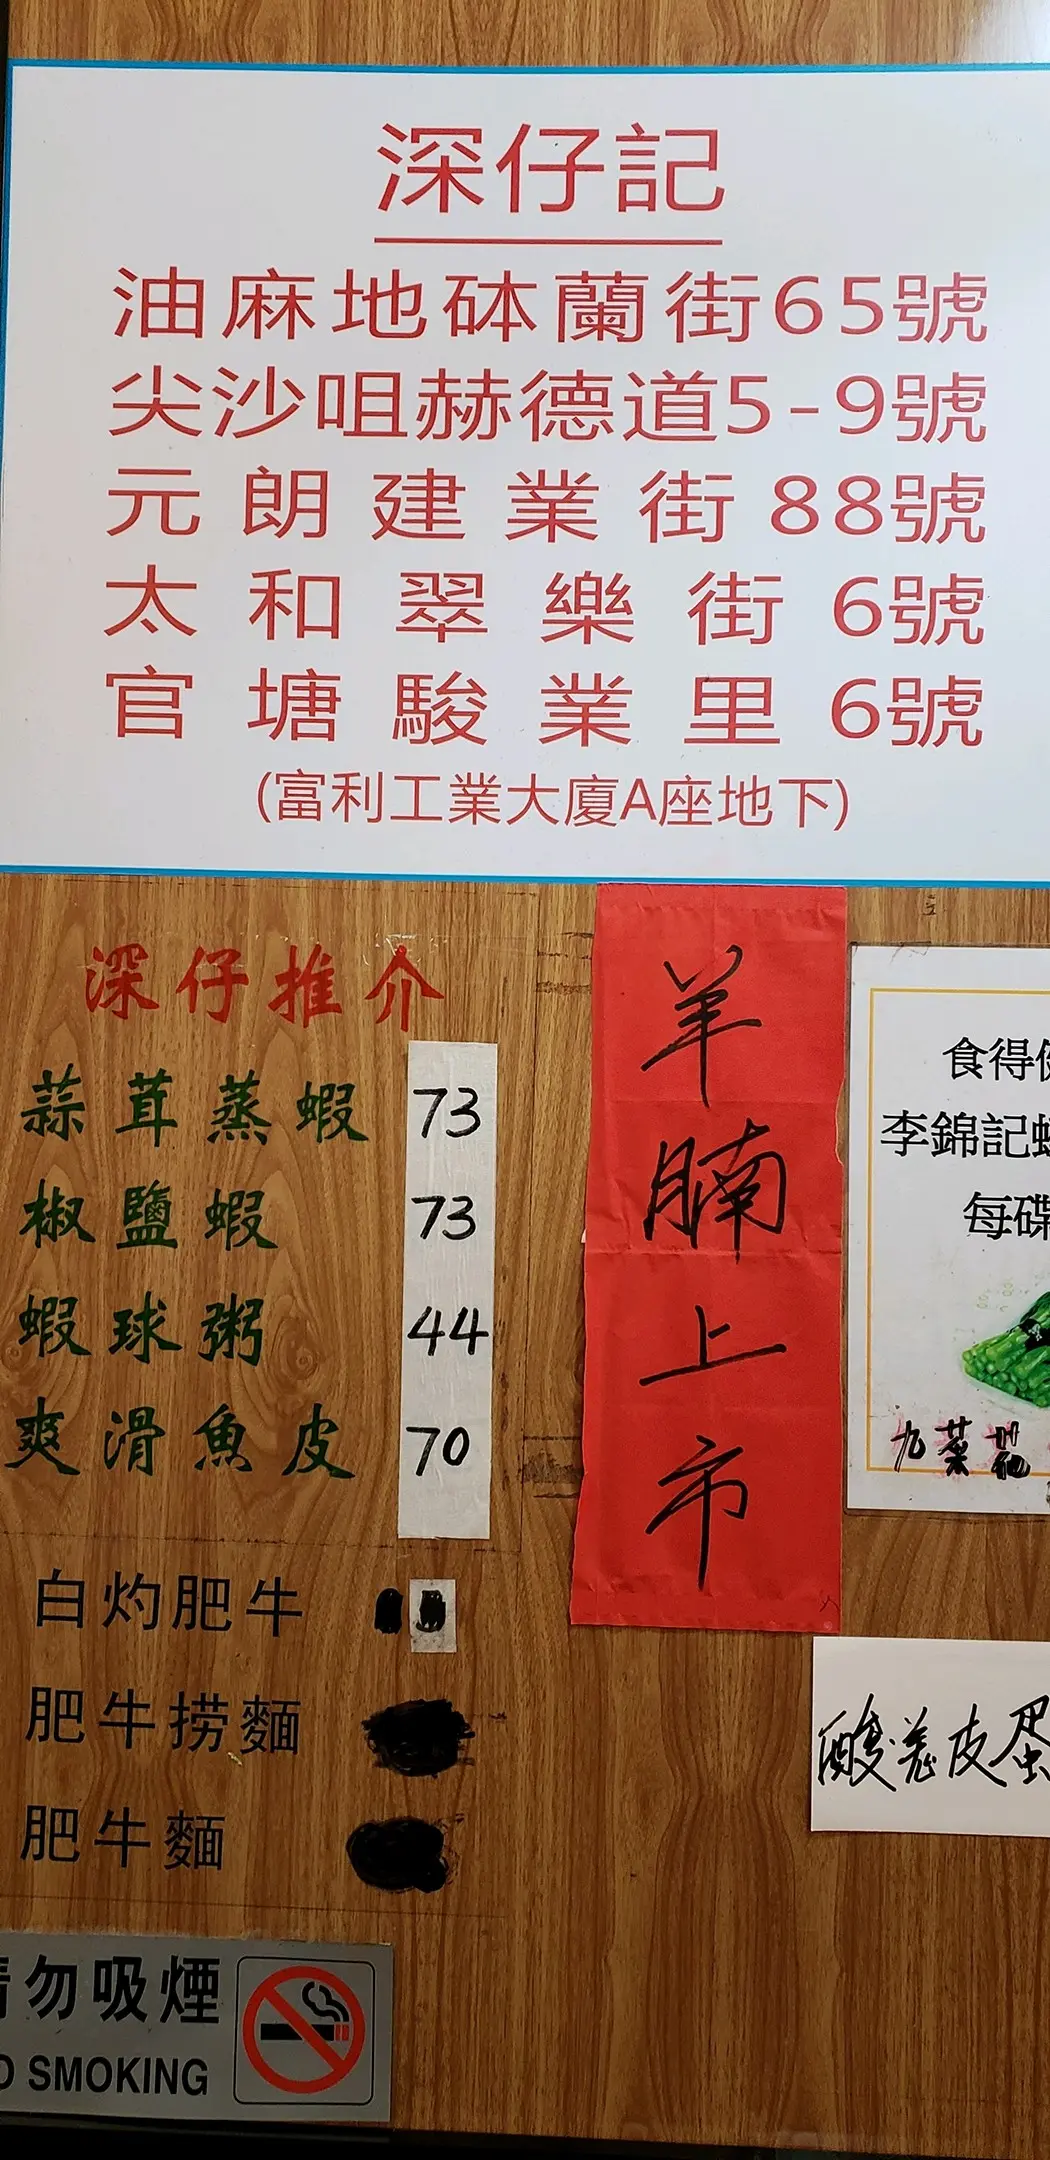 深仔記
油麻地砵蘭街65號
尖沙咀赫德道5-9號
元朗建業街88號
太和翠樂街6號
官塘駿業里6號
(富利工業大廈A座地下)
深仔推介
蒜茸蒸蝦 73
椒鹽蝦 73
蝦球粥 44
爽滑魚皮 70
白灼肥牛
肥牛捞麵
肥牛麵
羊腩上市
食得
李錦記
每碟
酸姜皮蛋
勿吸煙
SMOKING